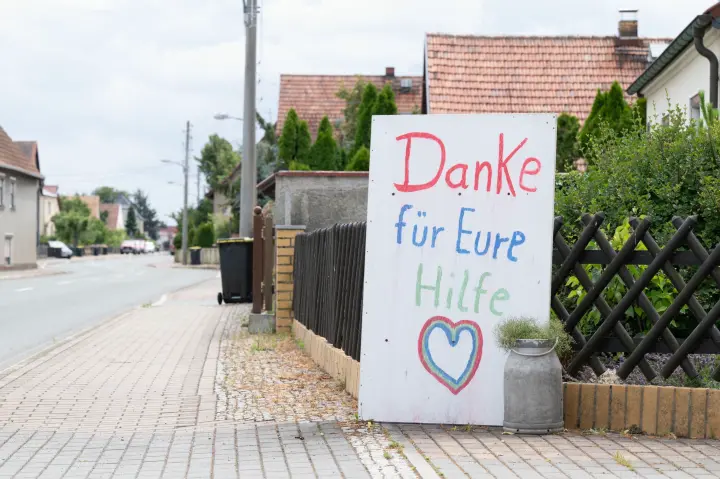 Danke
für Eure
Hilfe